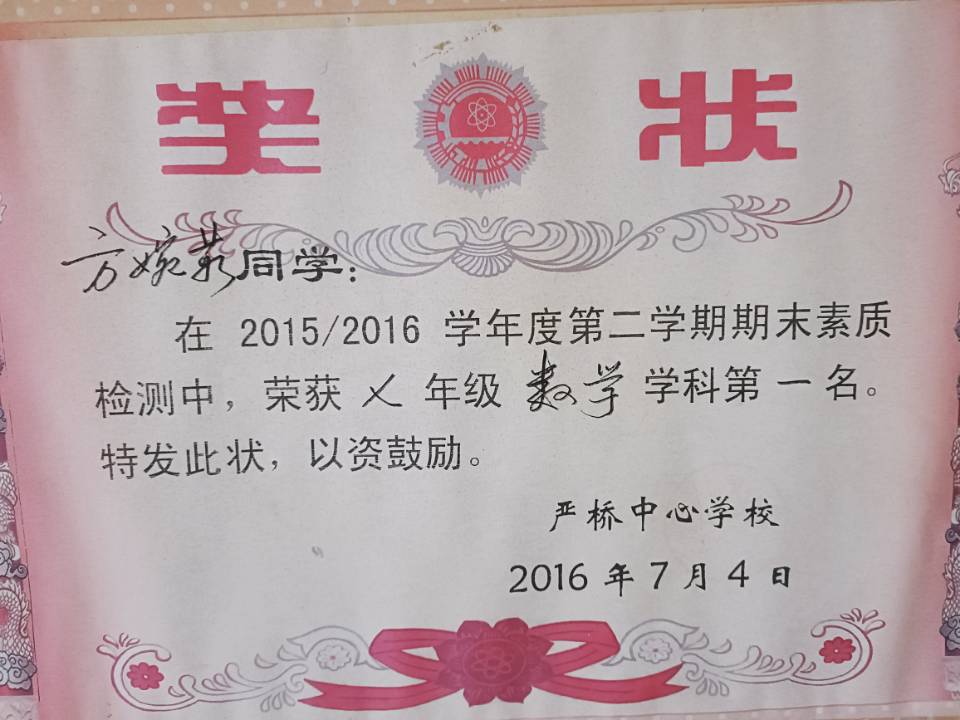 奖 状
方婉 同学：
在 2015/2016 学年度第二学期期末素质
检测中，荣获 年级 数学 学科第 一 名。
特发此状，以资鼓励。
严桥中心学校
2016 年 7 月 4 日